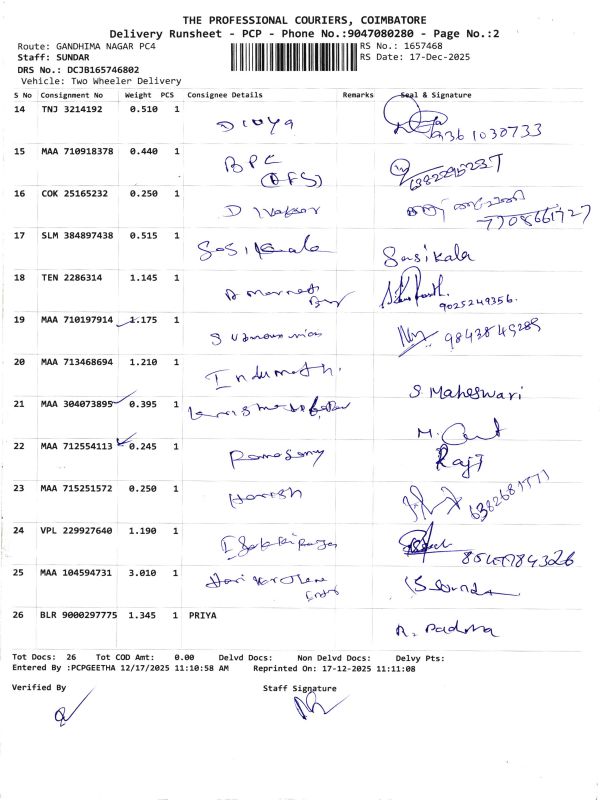 THE PROFESSIONAL COURIERS, COIMBATORE
Delivery Runsheet - PCP - Phone No.:9047080280 - Page No.:2
Route: GANDHIMA NAGAR PC4 RS No.: 1657468
Staff: SUNDAR RS Date: 17-Dec-2025
DRS No.: DCJB165746802
Vehicle: Two Wheeler Delivery
S No Consignment No Weight PCS Consignee Details Remarks Seal & Signature
14 TNJ 3214192 0.510 1 Divya 9361030733
15 MAA 710918378 0.440 1 BPC
16 COK 25165232 0.250 1 Divakar 7708661727
17 SLM 384897438 0.515 1 Sasikala Sasikala
18 TEN 2286314 1.145 1 9025249356.
19 MAA 710197914 1.175 1 9843845289
20 MAA 713468694 1.210 1 Indumath.
S. Maheswari
21 MAA 304073895 0.395 1
22 MAA 712554113 0.245 1 Ramasamy Raji
23 MAA 715251572 0.250 1 Harish
24 VPL 229927640 1.190 1
25 MAA 104594731 3.010 1
26 BLR 9000297775 1.345 1 PRIYA R. Padma
Tot Docs: 26 Tot COD Amt: 0.00 Delvd Docs: Non Delvd Docs: Delvy Pts:
Entered By :PCPGEETHA 12/17/2025 11:10:58 AM Reprinted On: 17-12-2025 11:11:08
Verified By Staff Signature